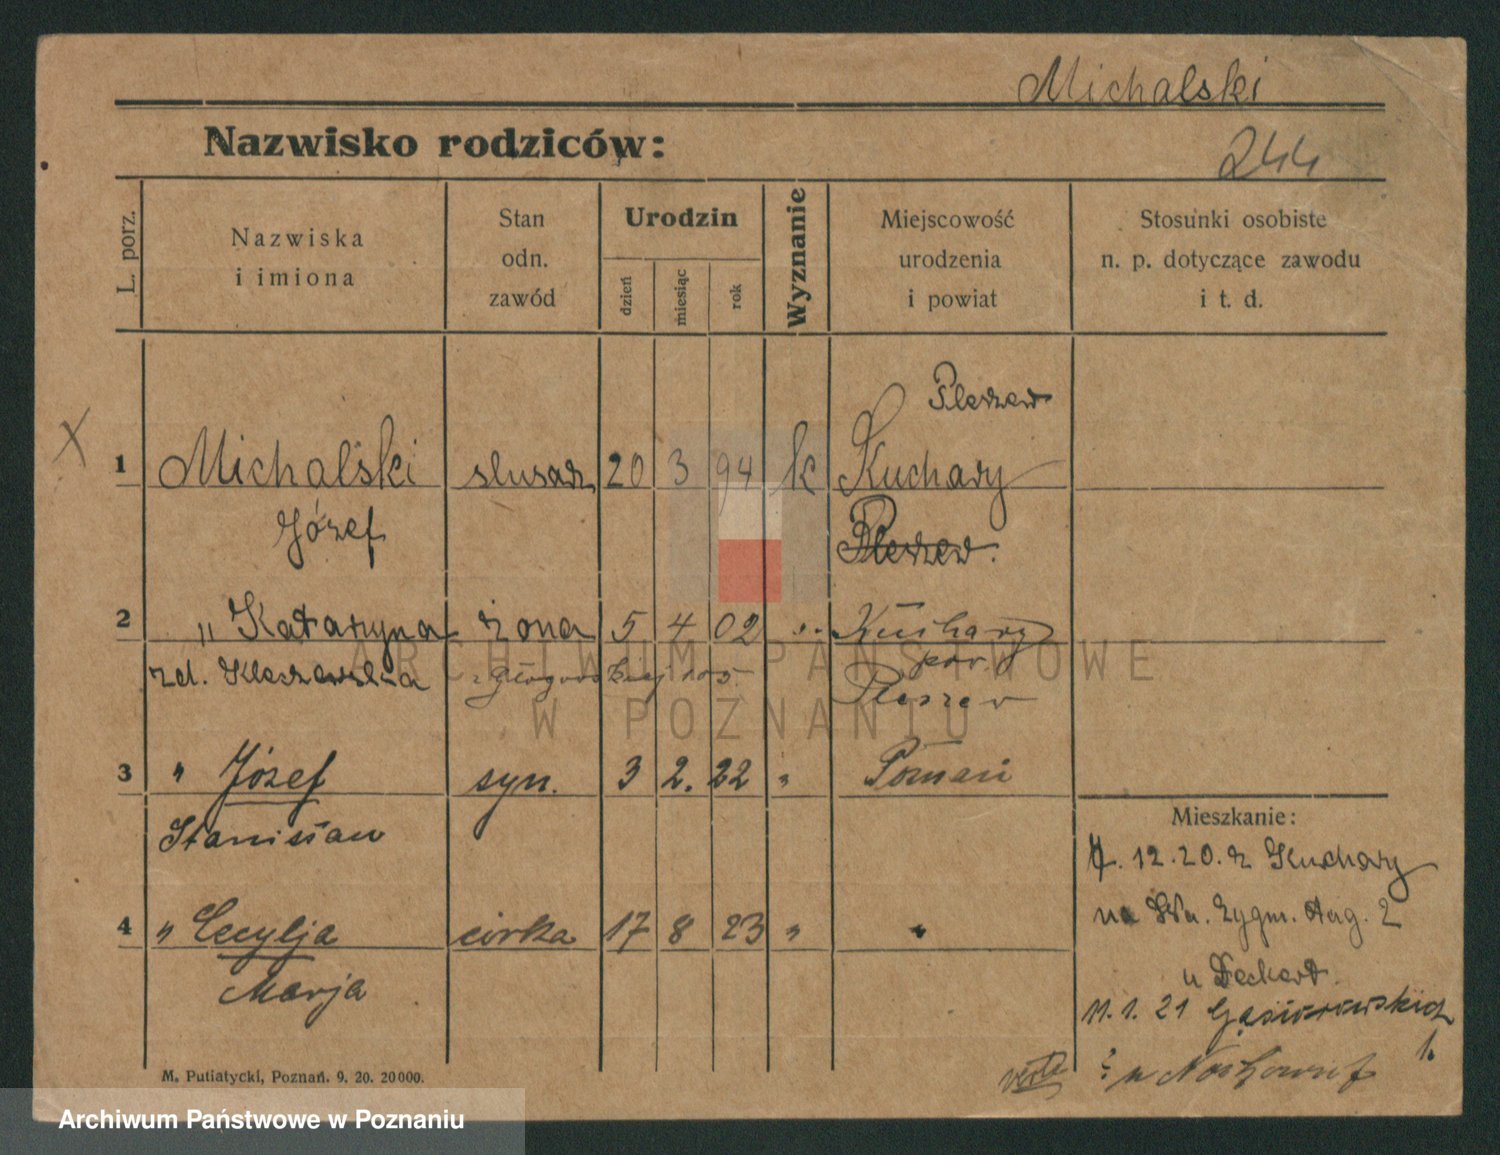 Michalski
Nazwisko rodziców:
244
L. porz.
Nazwiska
i imiona
Stan
odn.
zawód
Urodzin
dzień
miesiąc
rok
Wyznanie
Miejscowość
urodzenia
i powiat
Stosunki osobiste
n. p. dotyczące zawodu
i t. d.
Pleszew
X
1 Michalski slusarz 20 3 94 k Kuchary
Józef Pleszew.
2 " Katarzyna żona 5 4 02 " Kuchary
zd. pow.
Pleszew
ARCHIWUM PAŃSTWOWE
W POZNANIU
3 " Józef syn. 3 2. 22 " Poznań
Stanisław
Mieszkanie:
12.20. z Kuchary
4 " Cecylja córka 17 8 23 " "
na Wa. Zygm. Aug. 2
Marja
u Deckert.
11.1.21 Gąsiorowskich
1.
verte
u
M. Putiatycki, Poznań. 9. 20. 20000.
Archiwum Państwowe w Poznaniu